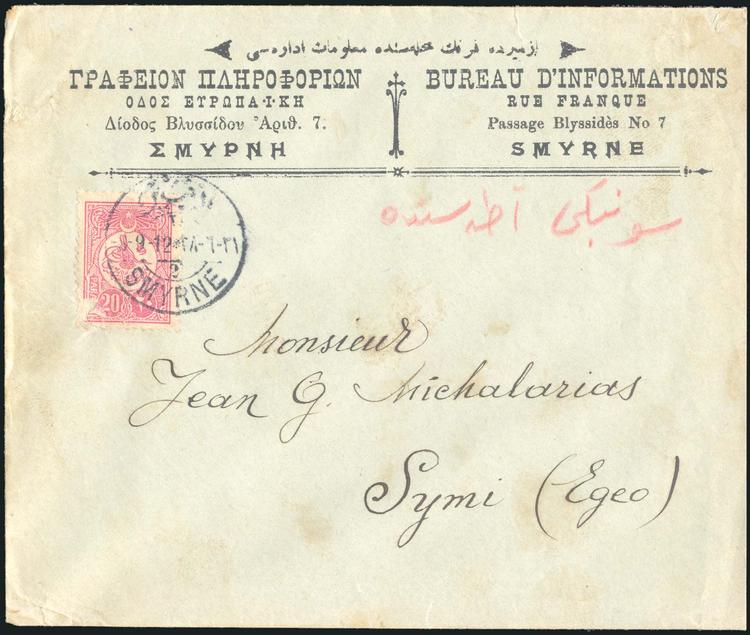 ازمیرده فرنك محله‌سنده معلومات اداره‌سی
ΓΡΑΦΕΙΟΝ ΠΛΗΡΟΦΟΡΙΩΝ
ΟΔΟΣ ΕΥΡΩΠΑ·Ι·ΚΗ
Δίοδος Βλυσσίδου Ἀριθ. 7.
ΣΜΥΡΝΗ
BUREAU D'INFORMATIONS
RUE FRANQUE
Passage Blyssidès No 7
SMYRNE
سونبكی آطه سنده
-9-12 ٢٨-٦-٣١
2
SMYRNE
20
Monsieur
Jean G. Michalarias
Symi (Egeo)